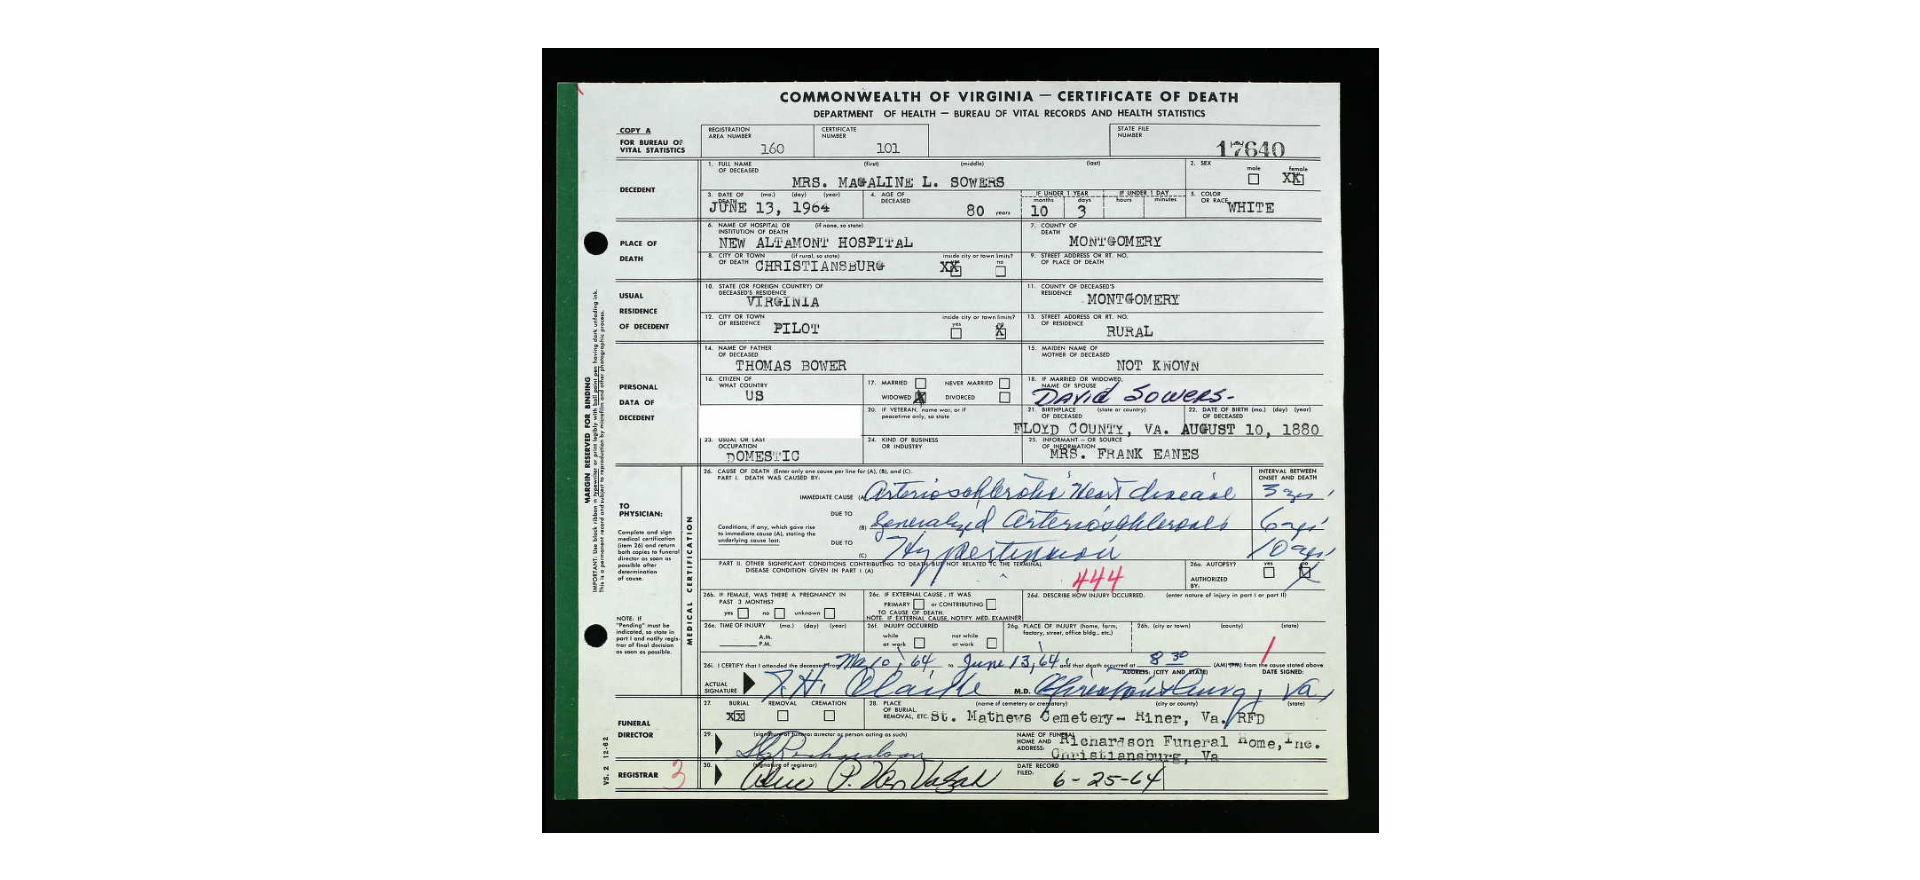 COMMONWEALTH OF VIRGINIA — CERTIFICATE OF DEATH
DEPARTMENT OF HEALTH — BUREAU OF VITAL RECORDS AND HEALTH STATISTICS
COPY A
FOR BUREAU OF VITAL STATISTICS
REGISTRATION AREA NUMBER 160
CERTIFICATE NUMBER 101
STATE FILE NUMBER 17640
DECEDENT
1. FULL NAME OF DECEASED (first) (middle) (last)
MRS. MAGALINE L. SOWERS
2. SEX male female XX
3. DATE OF DEATH (mo.) (day) (year)
JUNE 13, 1964
4. AGE OF DECEASED 80 years
IF UNDER 1 YEAR months days 10 3
IF UNDER 1 DAY hours minutes
5. COLOR OR RACE WHITE
PLACE OF DEATH
6. NAME OF HOSPITAL OR INSTITUTION OF DEATH (if none, so state)
NEW ALTAMONT HOSPITAL
7. COUNTY OF DEATH
MONTGOMERY
8. CITY OR TOWN OF DEATH (if rural, so state)
CHRISTIANSBURG
inside city or town limits? XX no
9. STREET ADDRESS OR RT. NO. OF PLACE OF DEATH
USUAL RESIDENCE OF DECEDENT
10. STATE (OR FOREIGN COUNTRY) OF DECEASED'S RESIDENCE
VIRGINIA
11. COUNTY OF DECEASED'S RESIDENCE
MONTGOMERY
12. CITY OR TOWN OF RESIDENCE PILOT
inside city or town limits? yes X
13. STREET ADDRESS OR RT. NO. OF RESIDENCE
RURAL
PERSONAL DATA OF DECEDENT
14. NAME OF FATHER OF DECEASED
THOMAS BOWER
15. MAIDEN NAME OF MOTHER OF DECEASED
NOT KNOWN
16. CITIZEN OF WHAT COUNTRY
US
17. MARRIED NEVER MARRIED
WIDOWED X DIVORCED
18. IF MARRIED OR WIDOWED, NAME OF SPOUSE
DAVID SOWERS-
20. IF VETERAN, name war, or if peacetime only, so state
21. BIRTHPLACE OF DECEASED (state or country)
FLOYD COUNTY, VA.
22. DATE OF BIRTH OF DECEASED (mo.) (day) (year)
AUGUST 10, 1880
23. USUAL OR LAST OCCUPATION
DOMESTIC
24. KIND OF BUSINESS OR INDUSTRY
25. INFORMANT — OR SOURCE OF INFORMATION
MRS. FRANK EANES
MARGIN RESERVED FOR BINDING
MEDICAL CERTIFICATION
TO PHYSICIAN:
Complete and sign medical certification (item 26) and return both copies to funeral director as soon as possible after determination of cause.
NOTE: If "Pending" must be indicated, so state in part I and notify registrar of final decision as soon as possible.
26. CAUSE OF DEATH (Enter only one cause per line for (A), (B), and (C).
PART I. DEATH WAS CAUSED BY:
INTERVAL BETWEEN ONSET AND DEATH
IMMEDIATE CAUSE (A) Arteriosohlerotic Heart disease
DUE TO
Conditions, if any, which gave rise to immediate cause (A), stating the underlying cause last.
(B) Generalized Arteriosohlerosis 6 yrs
DUE TO
(C) Hypertension 10 yrs
PART II. OTHER SIGNIFICANT CONDITIONS CONTRIBUTING TO DEATH BUT NOT RELATED TO THE TERMINAL DISEASE CONDITION GIVEN IN PART I (A)
444
26a. AUTOPSY? yes no
AUTHORIZED BY:
26b. IF FEMALE, WAS THERE A PREGNANCY IN PAST 3 MONTHS?
yes no unknown
26c. IF EXTERNAL CAUSE, IT WAS
PRIMARY or CONTRIBUTING TO CAUSE OF DEATH.
NOTE: IF EXTERNAL CAUSE, NOTIFY MED. EXAMINER
26d. DESCRIBE HOW INJURY OCCURRED. (enter nature of injury in part I or part II)
26e. TIME OF INJURY (mo.) (day) (year)
A.M.
P.M.
26f. INJURY OCCURRED
while at work not while at work
26g. PLACE OF INJURY (home, farm, factory, street, office bldg., etc.)
26h. (city or town) (county) (state)
26i. I CERTIFY that I attended the deceased from 64, to June 13, 64, and that death occurred at 8 30 (AM) (PM) from the cause stated above
ADDRESS: (CITY AND STATE) DATE SIGNED:
ACTUAL SIGNATURE M.D. Christiansburg, Va
FUNERAL DIRECTOR
27. BURIAL REMOVAL CREMATION
XX
28. PLACE OF BURIAL, REMOVAL, ETC. (name of cemetery or crematory) (city or county) (state)
St. Mathews Cemetery- Riner, Va. RFD
29. (signature of funeral director or person acting as such)
Richardson
NAME OF FUNERAL HOME AND ADDRESS:
Richardson Funeral Home, Inc.
Christiansburg, Va
REGISTRAR 3
30. (signature of registrar)
DATE RECORD FILED: 6-25-64
VS. 2 12-62